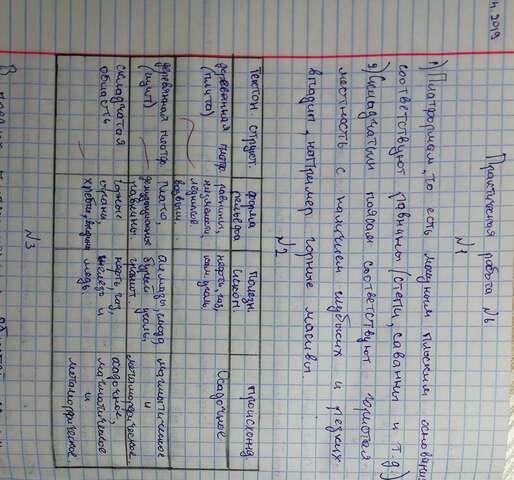 4.2019
Практическая работа №6
№1
1) Платформам, то есть мощным плоским основаниям
соответствуют равнины (степи, саванны и т.д.)
2) Складчатым поясам соответствуют гористая
местность с наличием глубоких и резких
впадин, например горные масивы
№2
Тектон. структ. форма рельефа Полезн. ископ. происхожд.
древняя платф. (плита) равнины, низменности, возвыш. нефть, газ, кам. уголь Осадочное
древняя платф. (щит) Плато, равнины. Алмазы, слюда, бурый уголь, магматическое и метаморфическое.
складчатая область Горные страны, хребты, нефть, газ, железо и медь осадочное, магматическое и метаморфическое.
№3